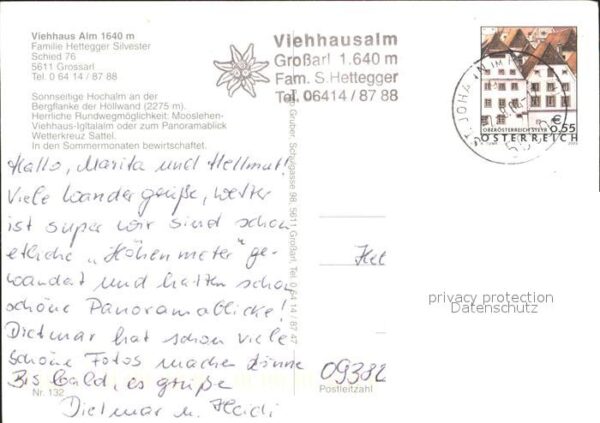 Viehhaus Alm 1640 m
Familie Hettegger Silvester
Schied 76
5611 Grossarl
Tel. 0 64 14 / 87 88
Sonnseitige Hochalm an der
Bergflanke der Hollwand (2275 m).
Herrliche Rundwegmöglichkeit: Mooslehen-
Viehhaus-Igltalalm oder zum Panoramablick
Wetterkreuz Sattel.
In den Sommermonaten bewirtschaftet.
Hallo, Marita und Hellmut!
Viele Wandergrüße, Wetter
ist super wir sind schon
etliche „Höhenmeter" ge-
wandert und hatten schon
schöne Panoramablicke!
Dietmar hat schon viele
schöne Fotos machen können
Bis bald, es grüße
Dietmar u. Heidi
Nr. 132
Gruber, Schiedgasse 98, 5611 Großarl, Tel. 0 64 14 / 87 47
Viehhausalm
Großarl 1.640 m
Fam. S. Hettegger
Tel. 06414 / 87 88
ST. JOHANN IM
€ 0,55
OBERÖSTERREICH STEYR
ÖSTERREICH
Het
privacy protection
Datenschutz
09382
Postleitzahl